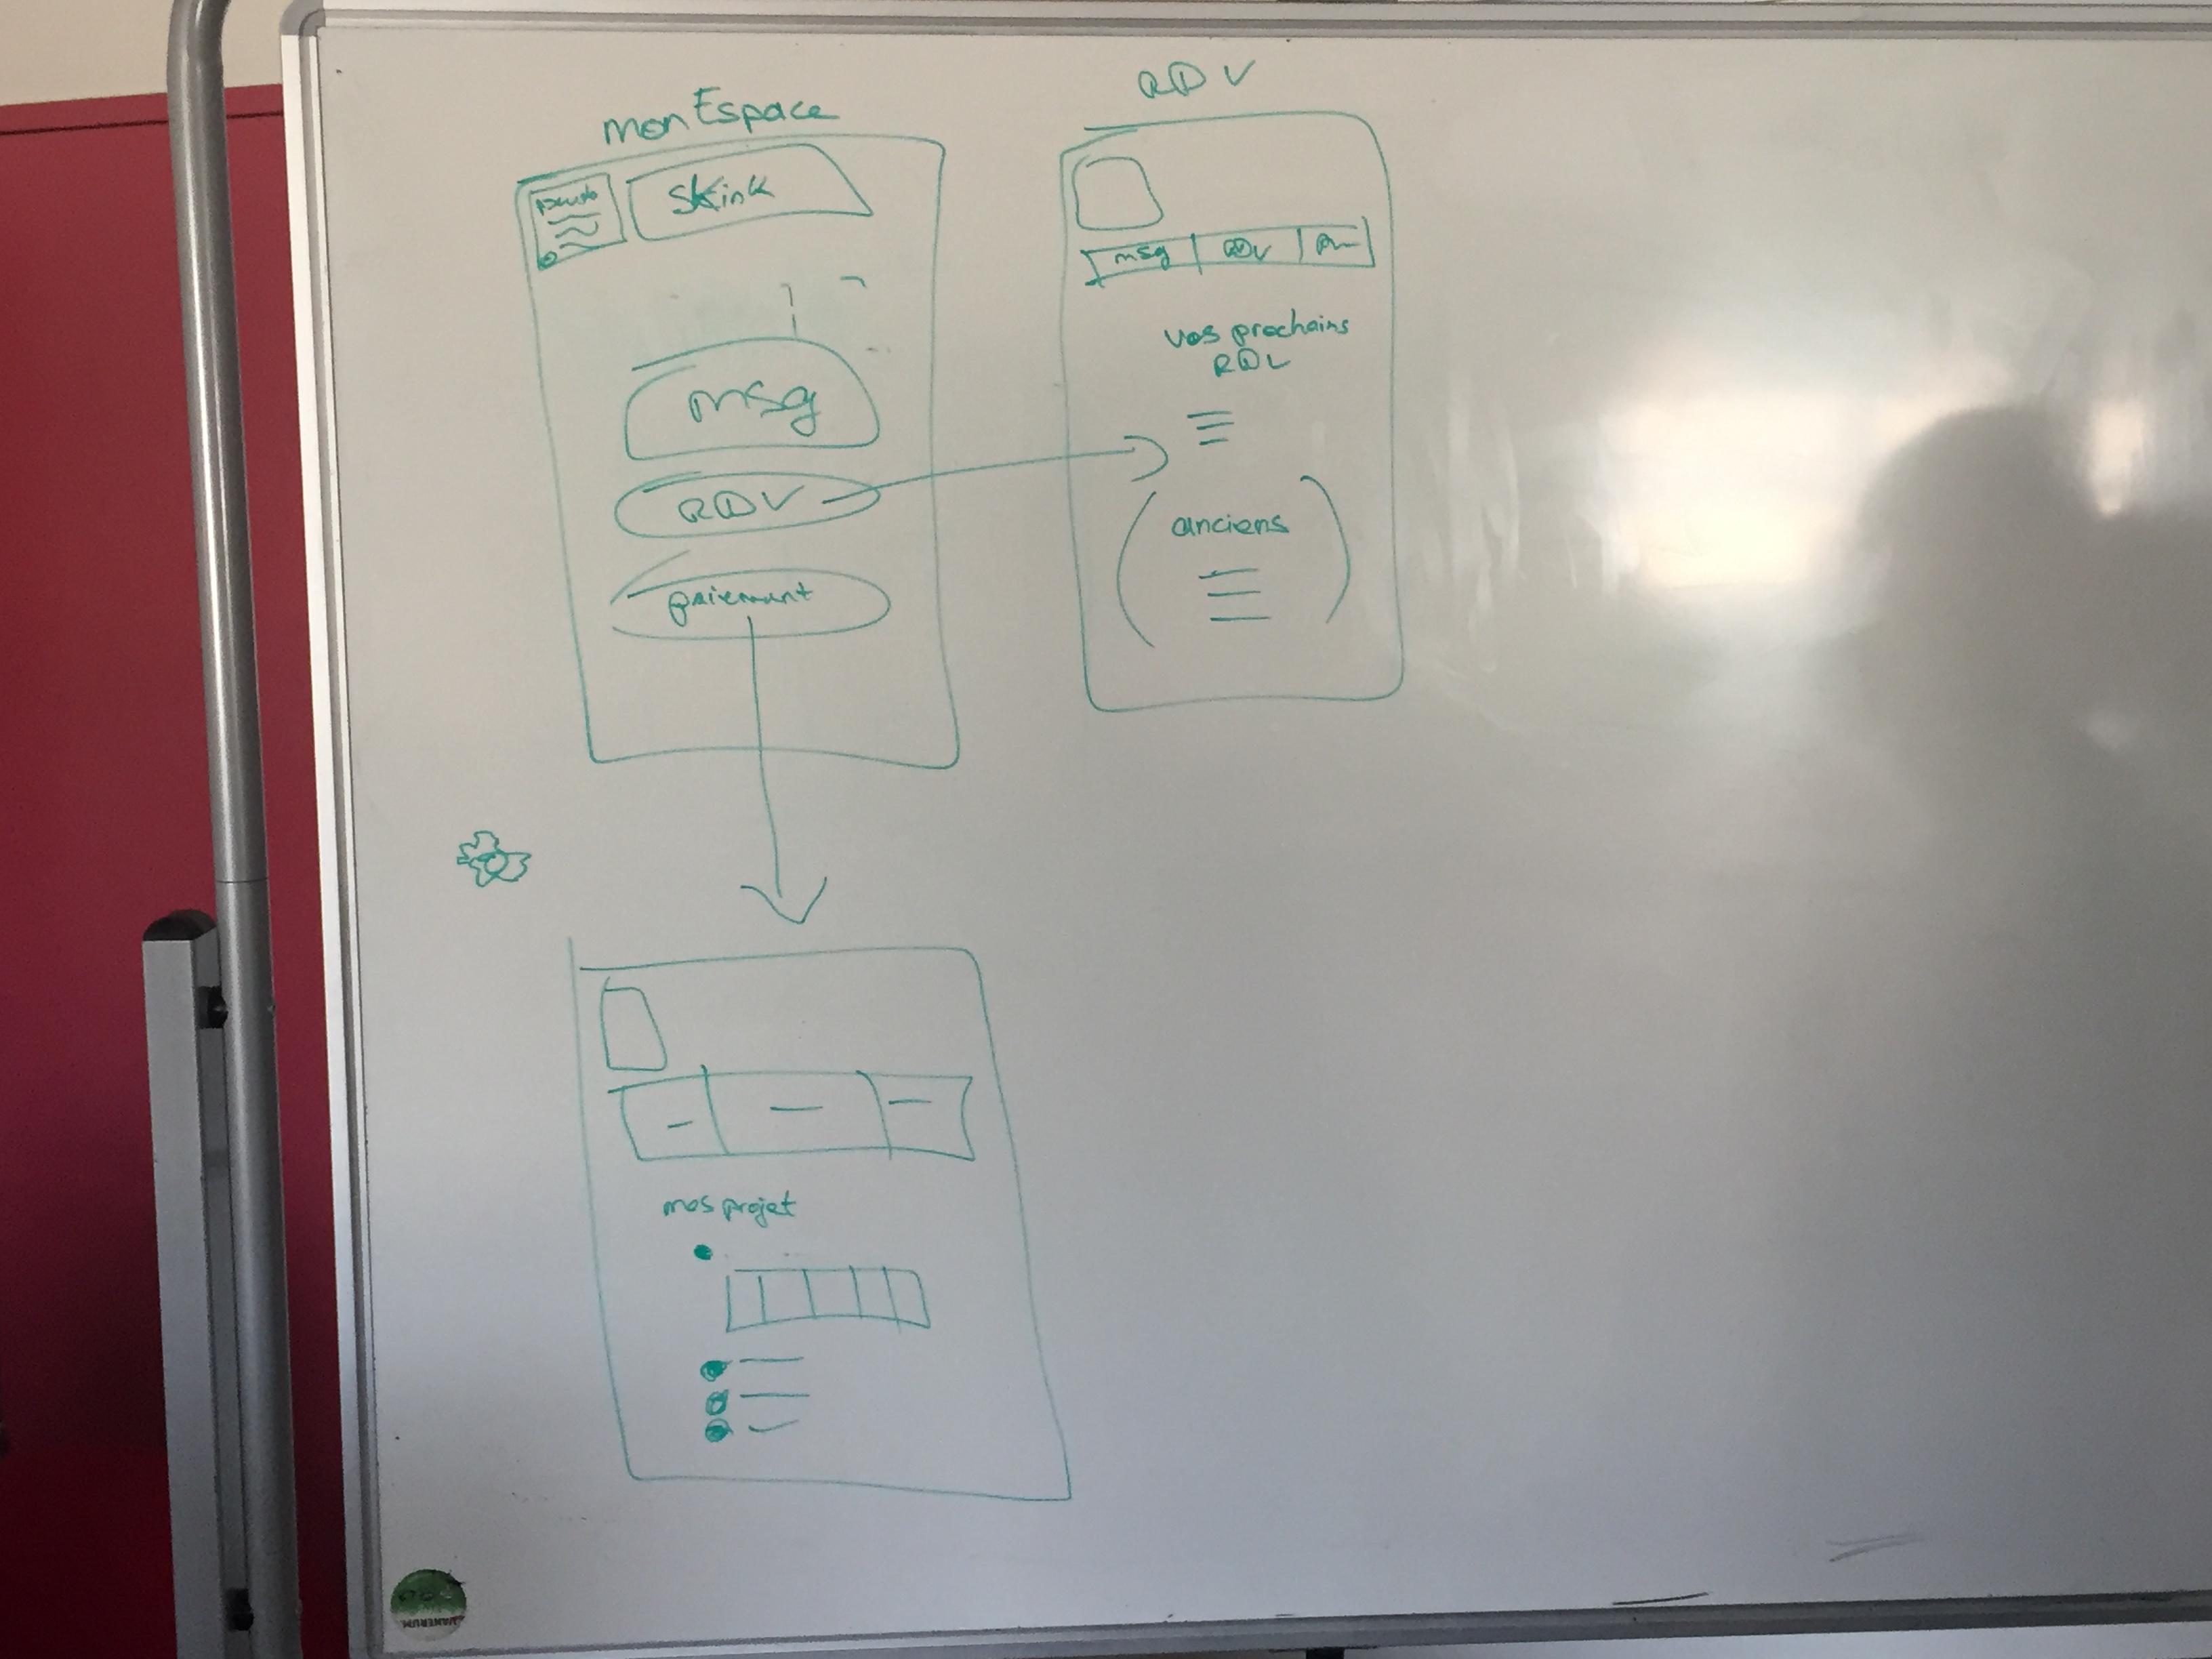 mon Espace
Skink
msg
RDV
paiement
RDV
msg RDV
vos prochains
RDV
anciens
mes projet